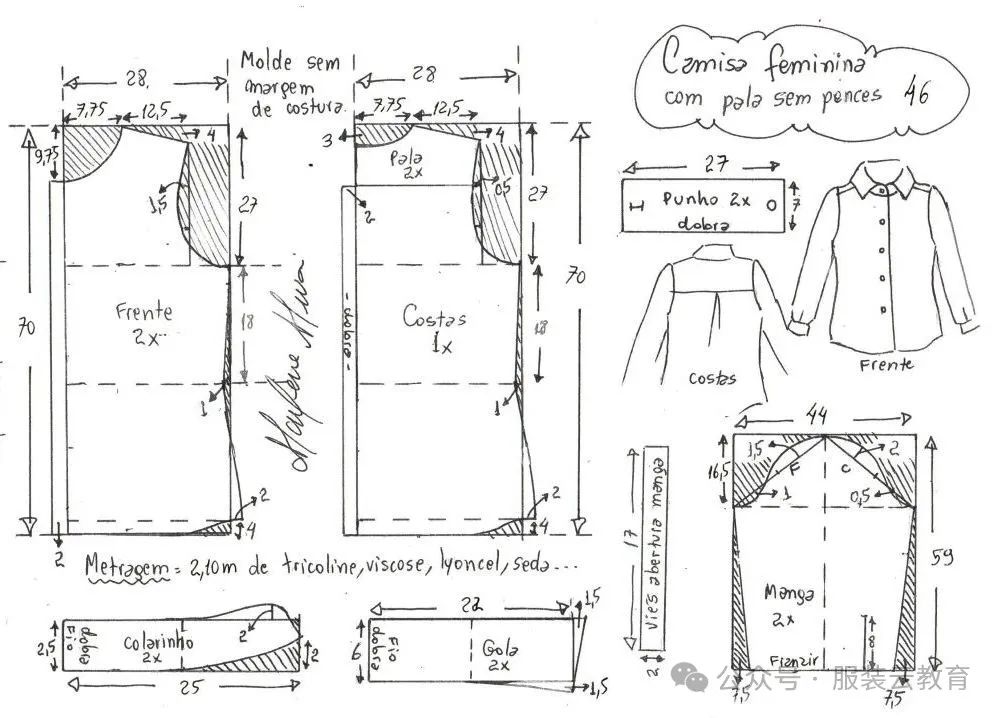 Camisa feminina
com pala sem pences 46
Molde sem
margem
de costura.
28
7,75
12,5
9,75
4
1,5
27
70
Frente
2x
18
1
2
4
2
28
7,75
12,5
3
4
Pala
2x
0,5
27
2
70
Costas
1x
- dobra -
18
1
2
4
27
Punho 2x
dobra
7
costas
Frente
Metragem = 2,10m de tricoline, viscose, lyoncel, seda...
2,5
dobra
fio
Colarinho
2x
2
2
25
22
1,5
6
dobra
fio
Gola
2x
1,5
17
viés abertura manga
2
44
1,5
2
16,5
F
C
1
0,5
59
Manga
2x
8
Franzir
7,5
7,5
公众号 · 服装云教育